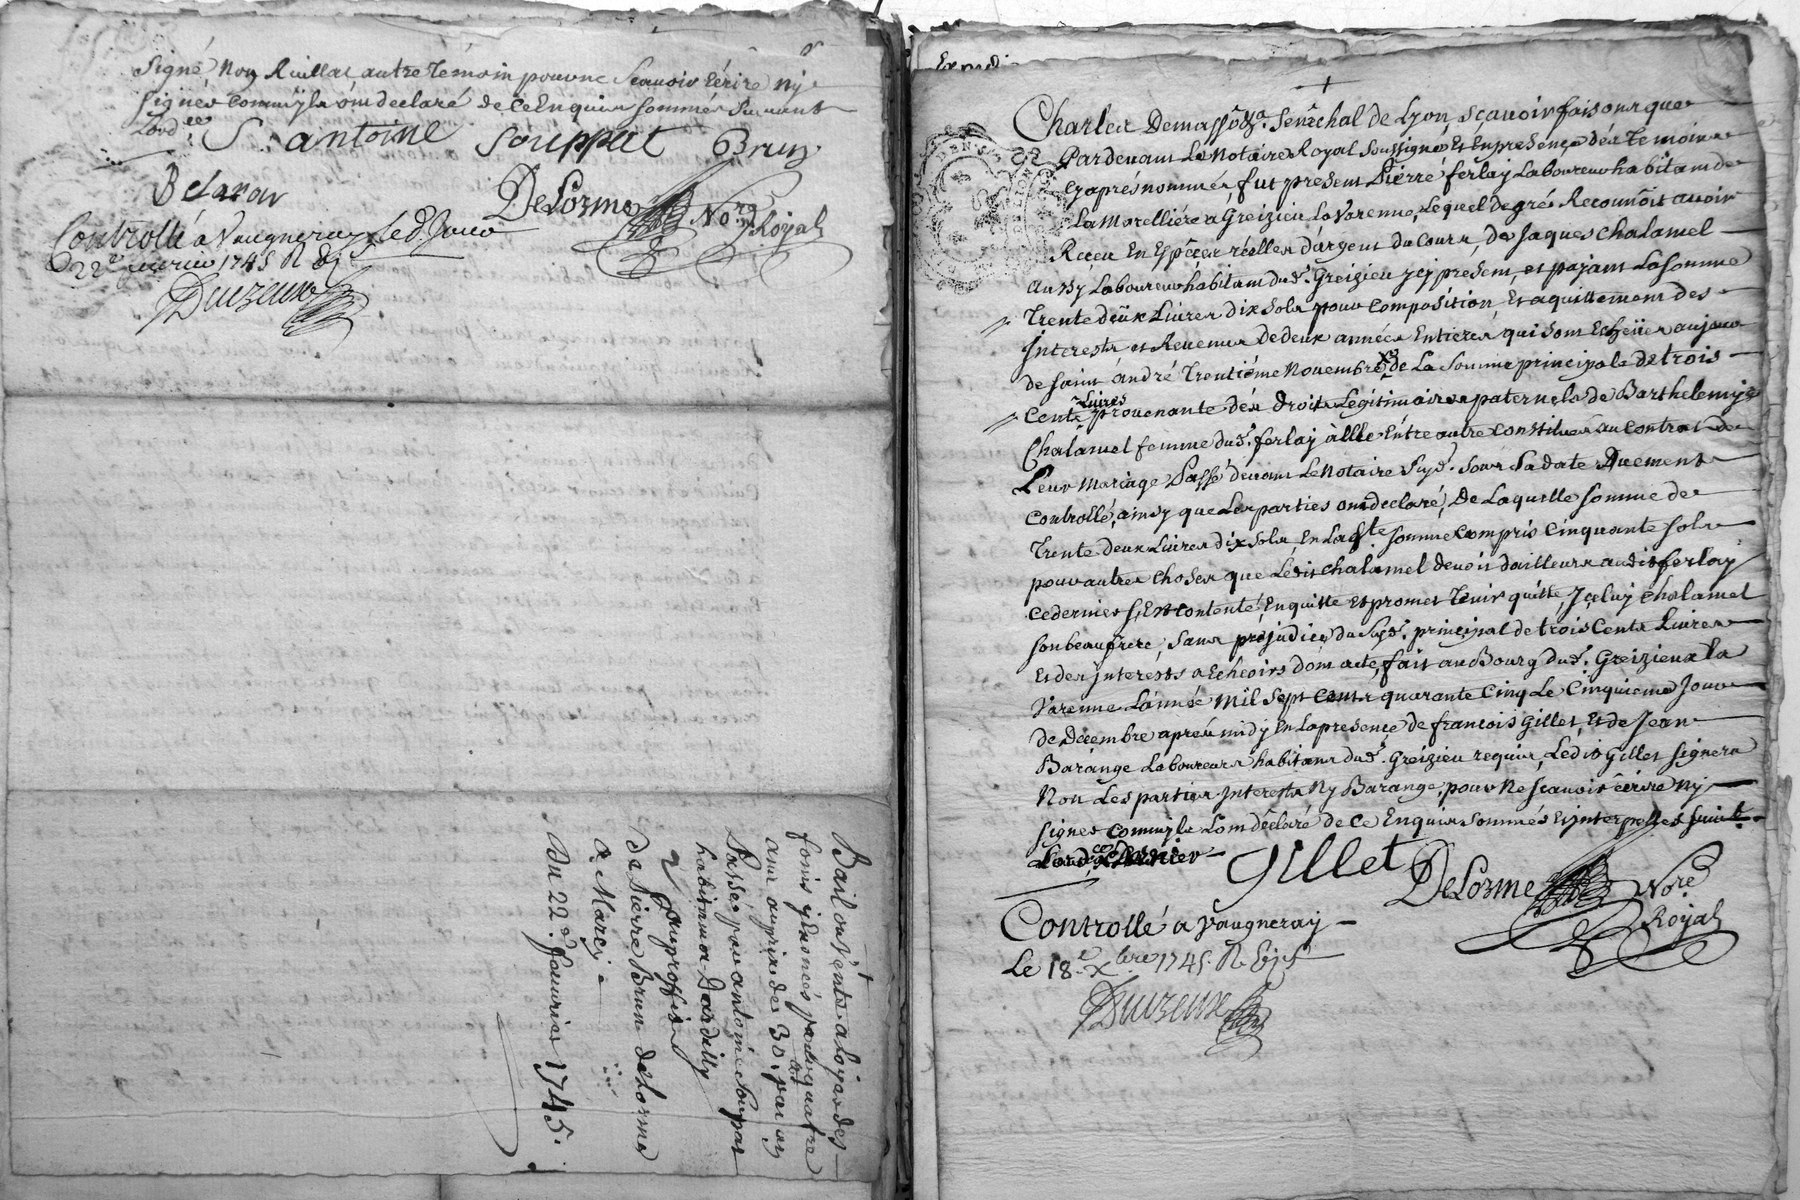 Signé Non Ruillat autre témoin pour ne Scavoir Ecrire ny
signer comm'il a ôm declaré de ce Enquis sommés Suivant
Lord.ce
S. antoine Souppat Brun
Belaran
DeLorme No.re Royal
Controllé a Vaugneray Led. Jour
22e feuvrier 1745 R
Duizeux
Bail ou Vente a Loyer des
foins y
ans au prix de 30 par an
Passé par antoine Soupat
habitans a Dardilly
au proffit
de Pierre Brun de Losme
a Marcy
Du 22e. feuvrier 1745.
Expedi
Charles Demasso &a. Senêchal de Lyon, sçavoir faisons que
Pardevant Le Notaire Royal Soussigné Et En presence des Temoins
Cy aprés nommés, fut present Pierre ferlay Laboureur habitam de
La Morelliére a Greizieu La Varenne, Lequel de gré Reconnoît avoir
Receu En Espêces réelles d'argent du Cours, de Jaques Chalamel
aussy Laboureur habitam dud. Greizieu jcy présent, et payant La somme
Trente deux Livres dix sols pour Composition Et aquittement des
Interests et Revenus De deux années Entieres, qui sont Echeües aujour
de saint andré Trentiéme Novembre de La Somme principale de trois
Cents Livres provenante des droits Legitimaires paternels de Barthelemye
Chalamel femme dud. ferlay à Elle Entre autre Constitués au Contrat de
Leur Mariage Passé devant Le Notaire Susd. sous Sa date Duement
Controllé, ainsy que Les parties om declaré, De Laquelle somme de
Trente deux Livres dix Sols, En Laqte somme Compris Cinquante sols
pour autres choses que Ledit Chalamel devoit d'ailleurs audit ferlay
Ce dernier s'Est contenté, En quitte Et promet Tenir quitte, Jceluy Chalamel
son beaufrere, Sans préjudice du Susd. principal de trois Cents Livres
Et des jnterests a Echeoirs dom acte, fait au Bourg dud. Greizieux la
Varenne L'année Mil Sept Cents quarante Cinq Le Cinquieme Jour
de Décembre aprés midy En La presence de francois Gillet, Et de Jean
Barange Laboureurs habitans dud. Greizieu requis, Ledit Gillet signera
Non Les parties Interests Ny Barange, pour Ne Scavoir écrire Ny
signer Comm'ils L'om déclaré de Ce Enquis Sommés Et jnterpellés suivt.
Lord.ce
Gillet
DeLorme Nore. Royal
Controllé a Vaugneray
Le 18e. Xbre 1745. R
Duizeux